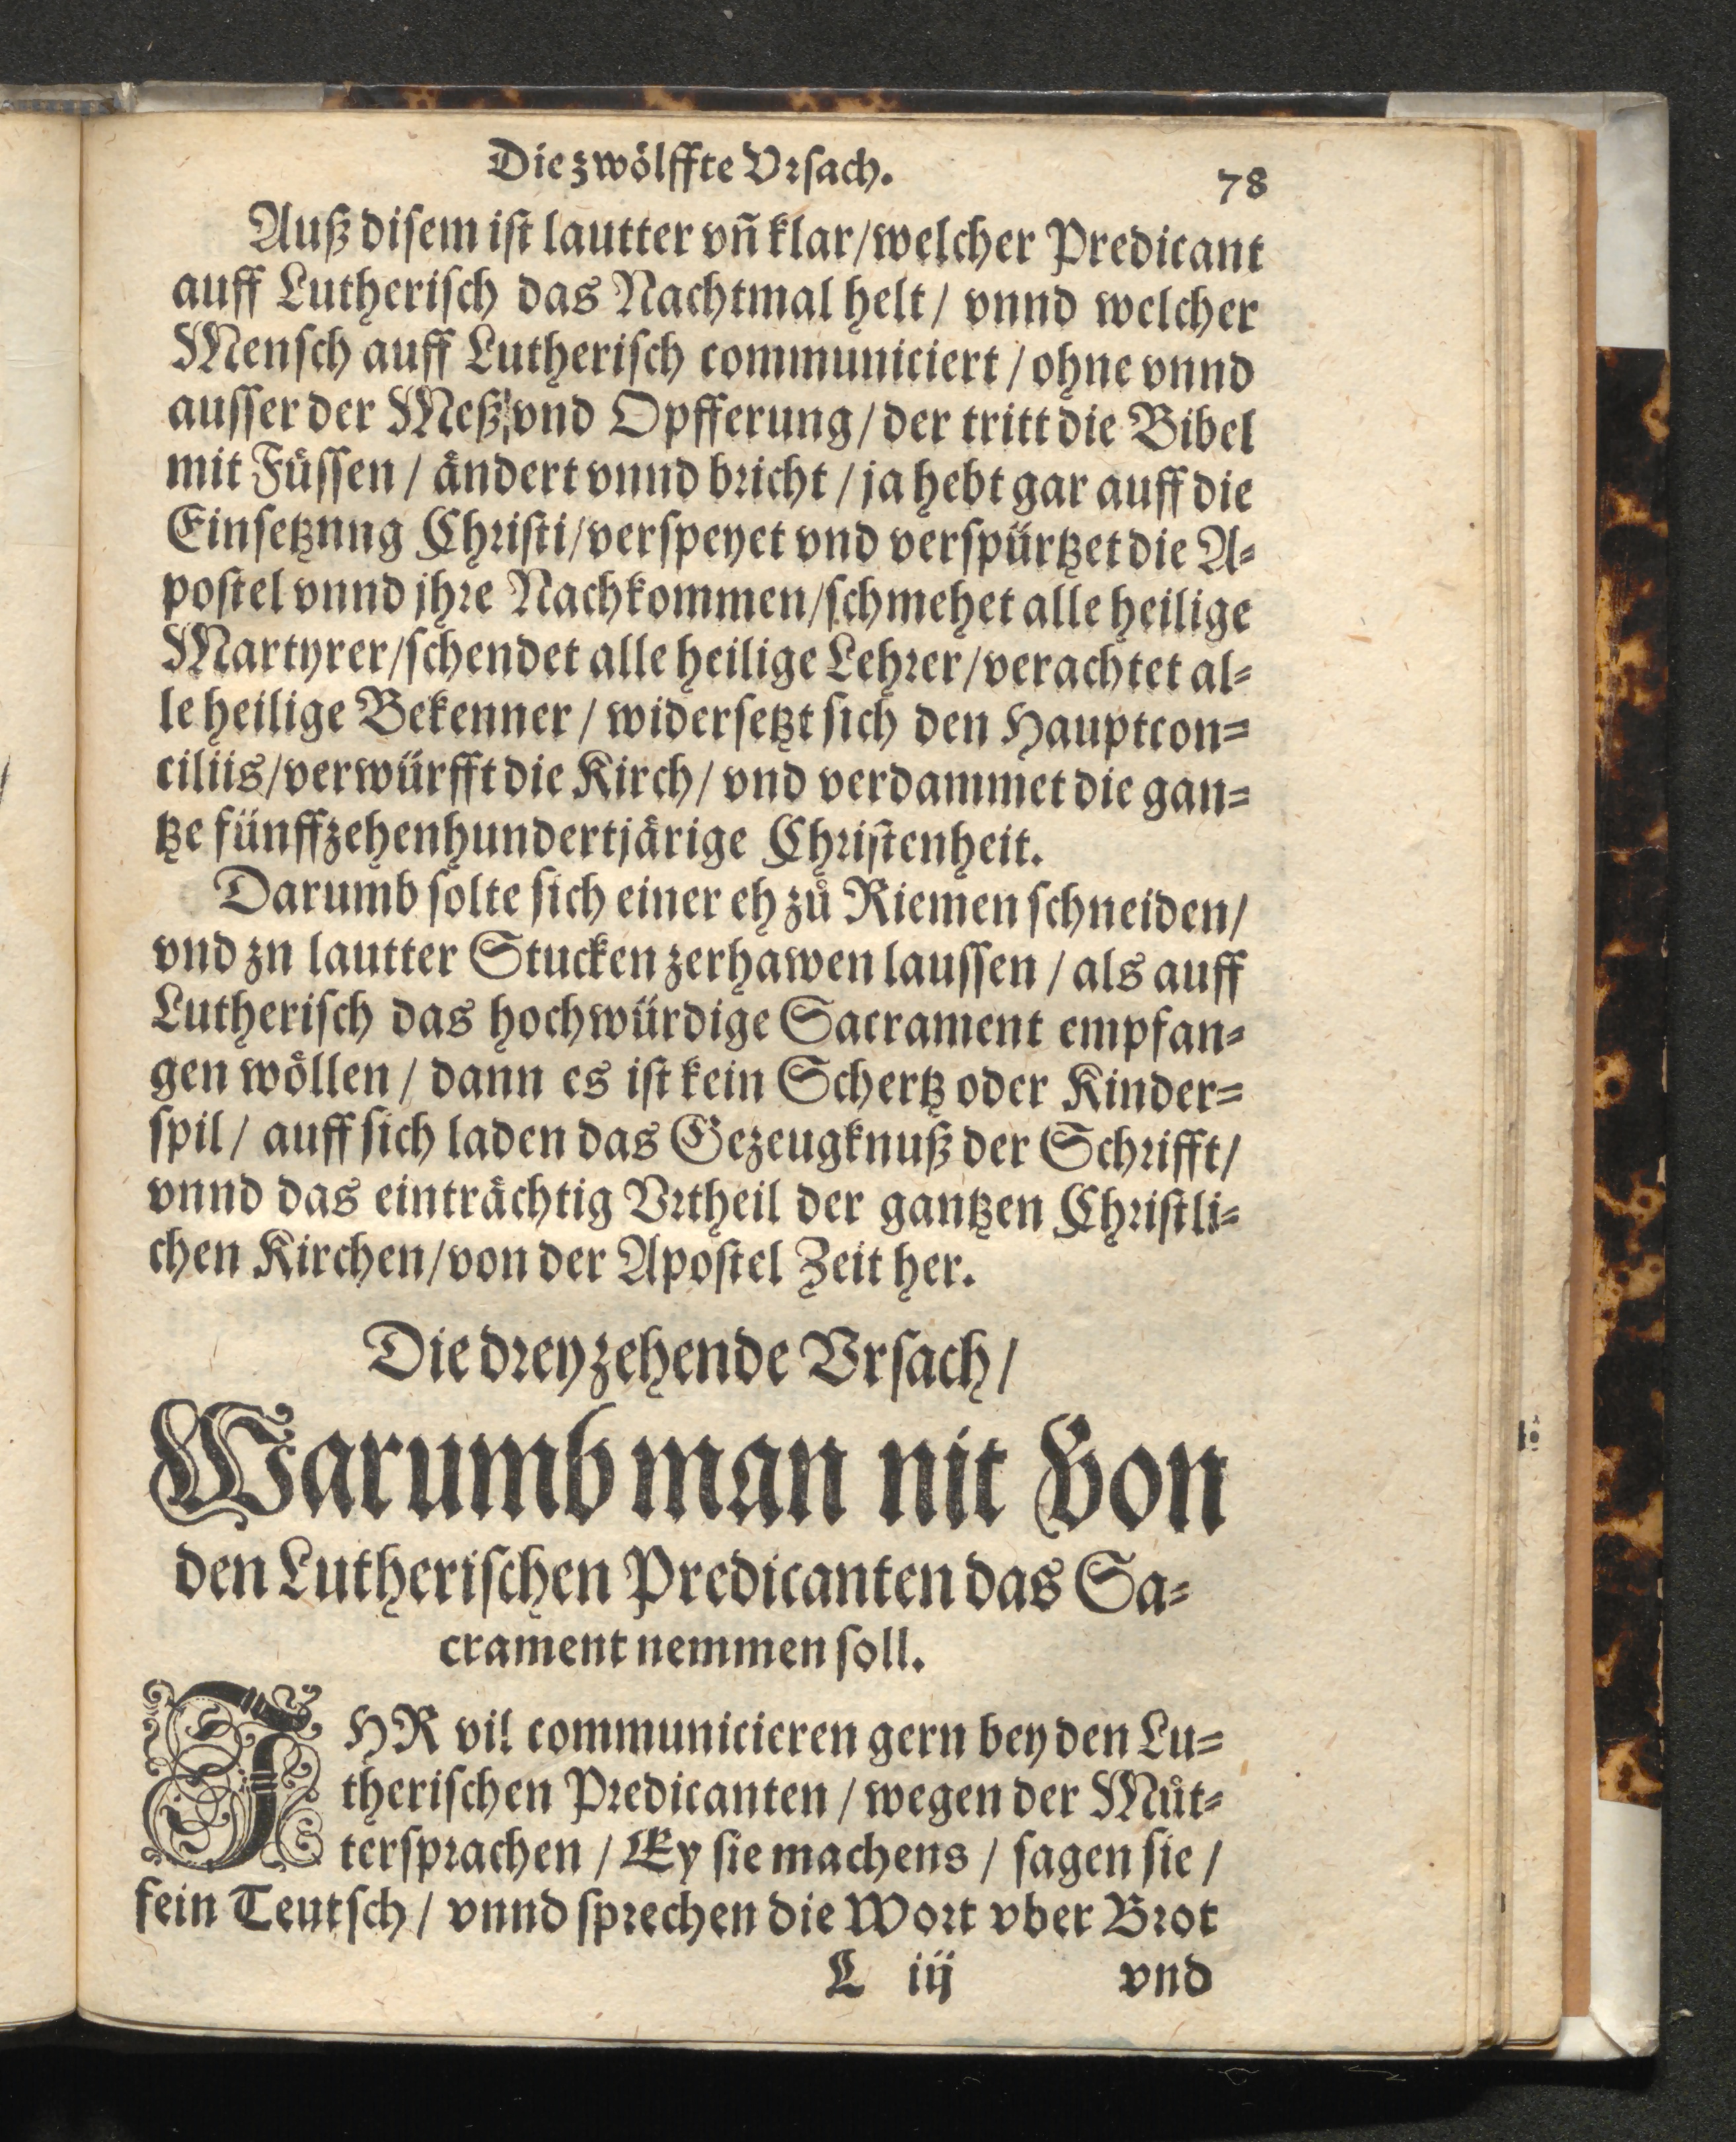 Die zwölffte Vrsach. 78
Auß disem ist lautter vñ klar/welcher Predicant
auff Lutherisch das Nachtmal helt/ vnnd welcher
Mensch auff Lutherisch communiciert/ohne vnnd
ausser der Meß/vnd Opfferung/der tritt die Bibel
mit Füssen/ ändert vnnd bricht/ja hebt gar auff die
Einsetznng Christi/verspeyet vnd verspürtzet die A-
postel vnnd jhre Nachkommen/schmehet alle heilige
Martyrer/schendet alle heilige Lehrer/verachtet al-
le heilige Bekenner/ widersetzt sich den Hauptcon-
ciliis/verwürfft die Kirch/ vnd verdammet die gan-
tze fünffzehenhundertjärige Christenheit.
Darumb solte sich einer eh zů Riemen schneiden/
vnd zn lautter Stucken zerhawen laussen/als auff
Lutherisch das hochwürdige Sacrament empfan-
gen wöllen/ dann es ist kein Schertz oder Kinder-
spil/ auff sich laden das Gezeugknuß der Schrifft/
vnnd das einträchtig Vrtheil der gantzen Christli-
chen Kirchen/von der Apostel Zeit her.
Die dreyzehende Vrsach/
Warumb man nit Von
den Lutherischen Predicanten das Sa-
crament nemmen soll.
JHR vil communicieren gern bey den Lu-
therischen Predicanten/wegen der Můt-
tersprachen/Ey sie machens/sagen sie/
fein Teutsch/ vnnd sprechen die Wort vber Brot
L iij vnd